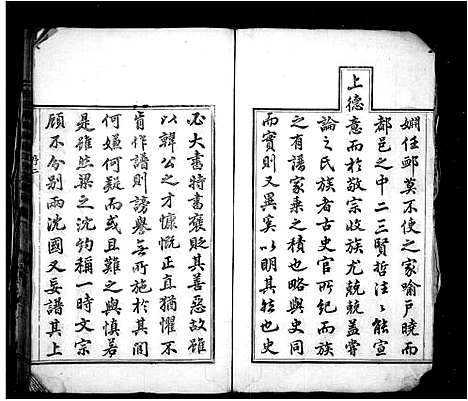 婣任卹莫不使之家喻戶曉而
都邑之中二三賢哲往〻能宣
上德意而於敬宗收族尤兢兢蓋嘗
論之氏族者古史官所紀而族
之有譜家乘之積也略與史同
而實則又異奚以明其然也史
必大書特書襃貶其善惡故雖
以韓公之才慷慨正直猶懼不
肯作譜則謗譽無所施於其間
何嫌何疑而或且難之與慎若
是雖然梁之沈約稱一時文宗
顧不分别兩沈國又妄譜其上